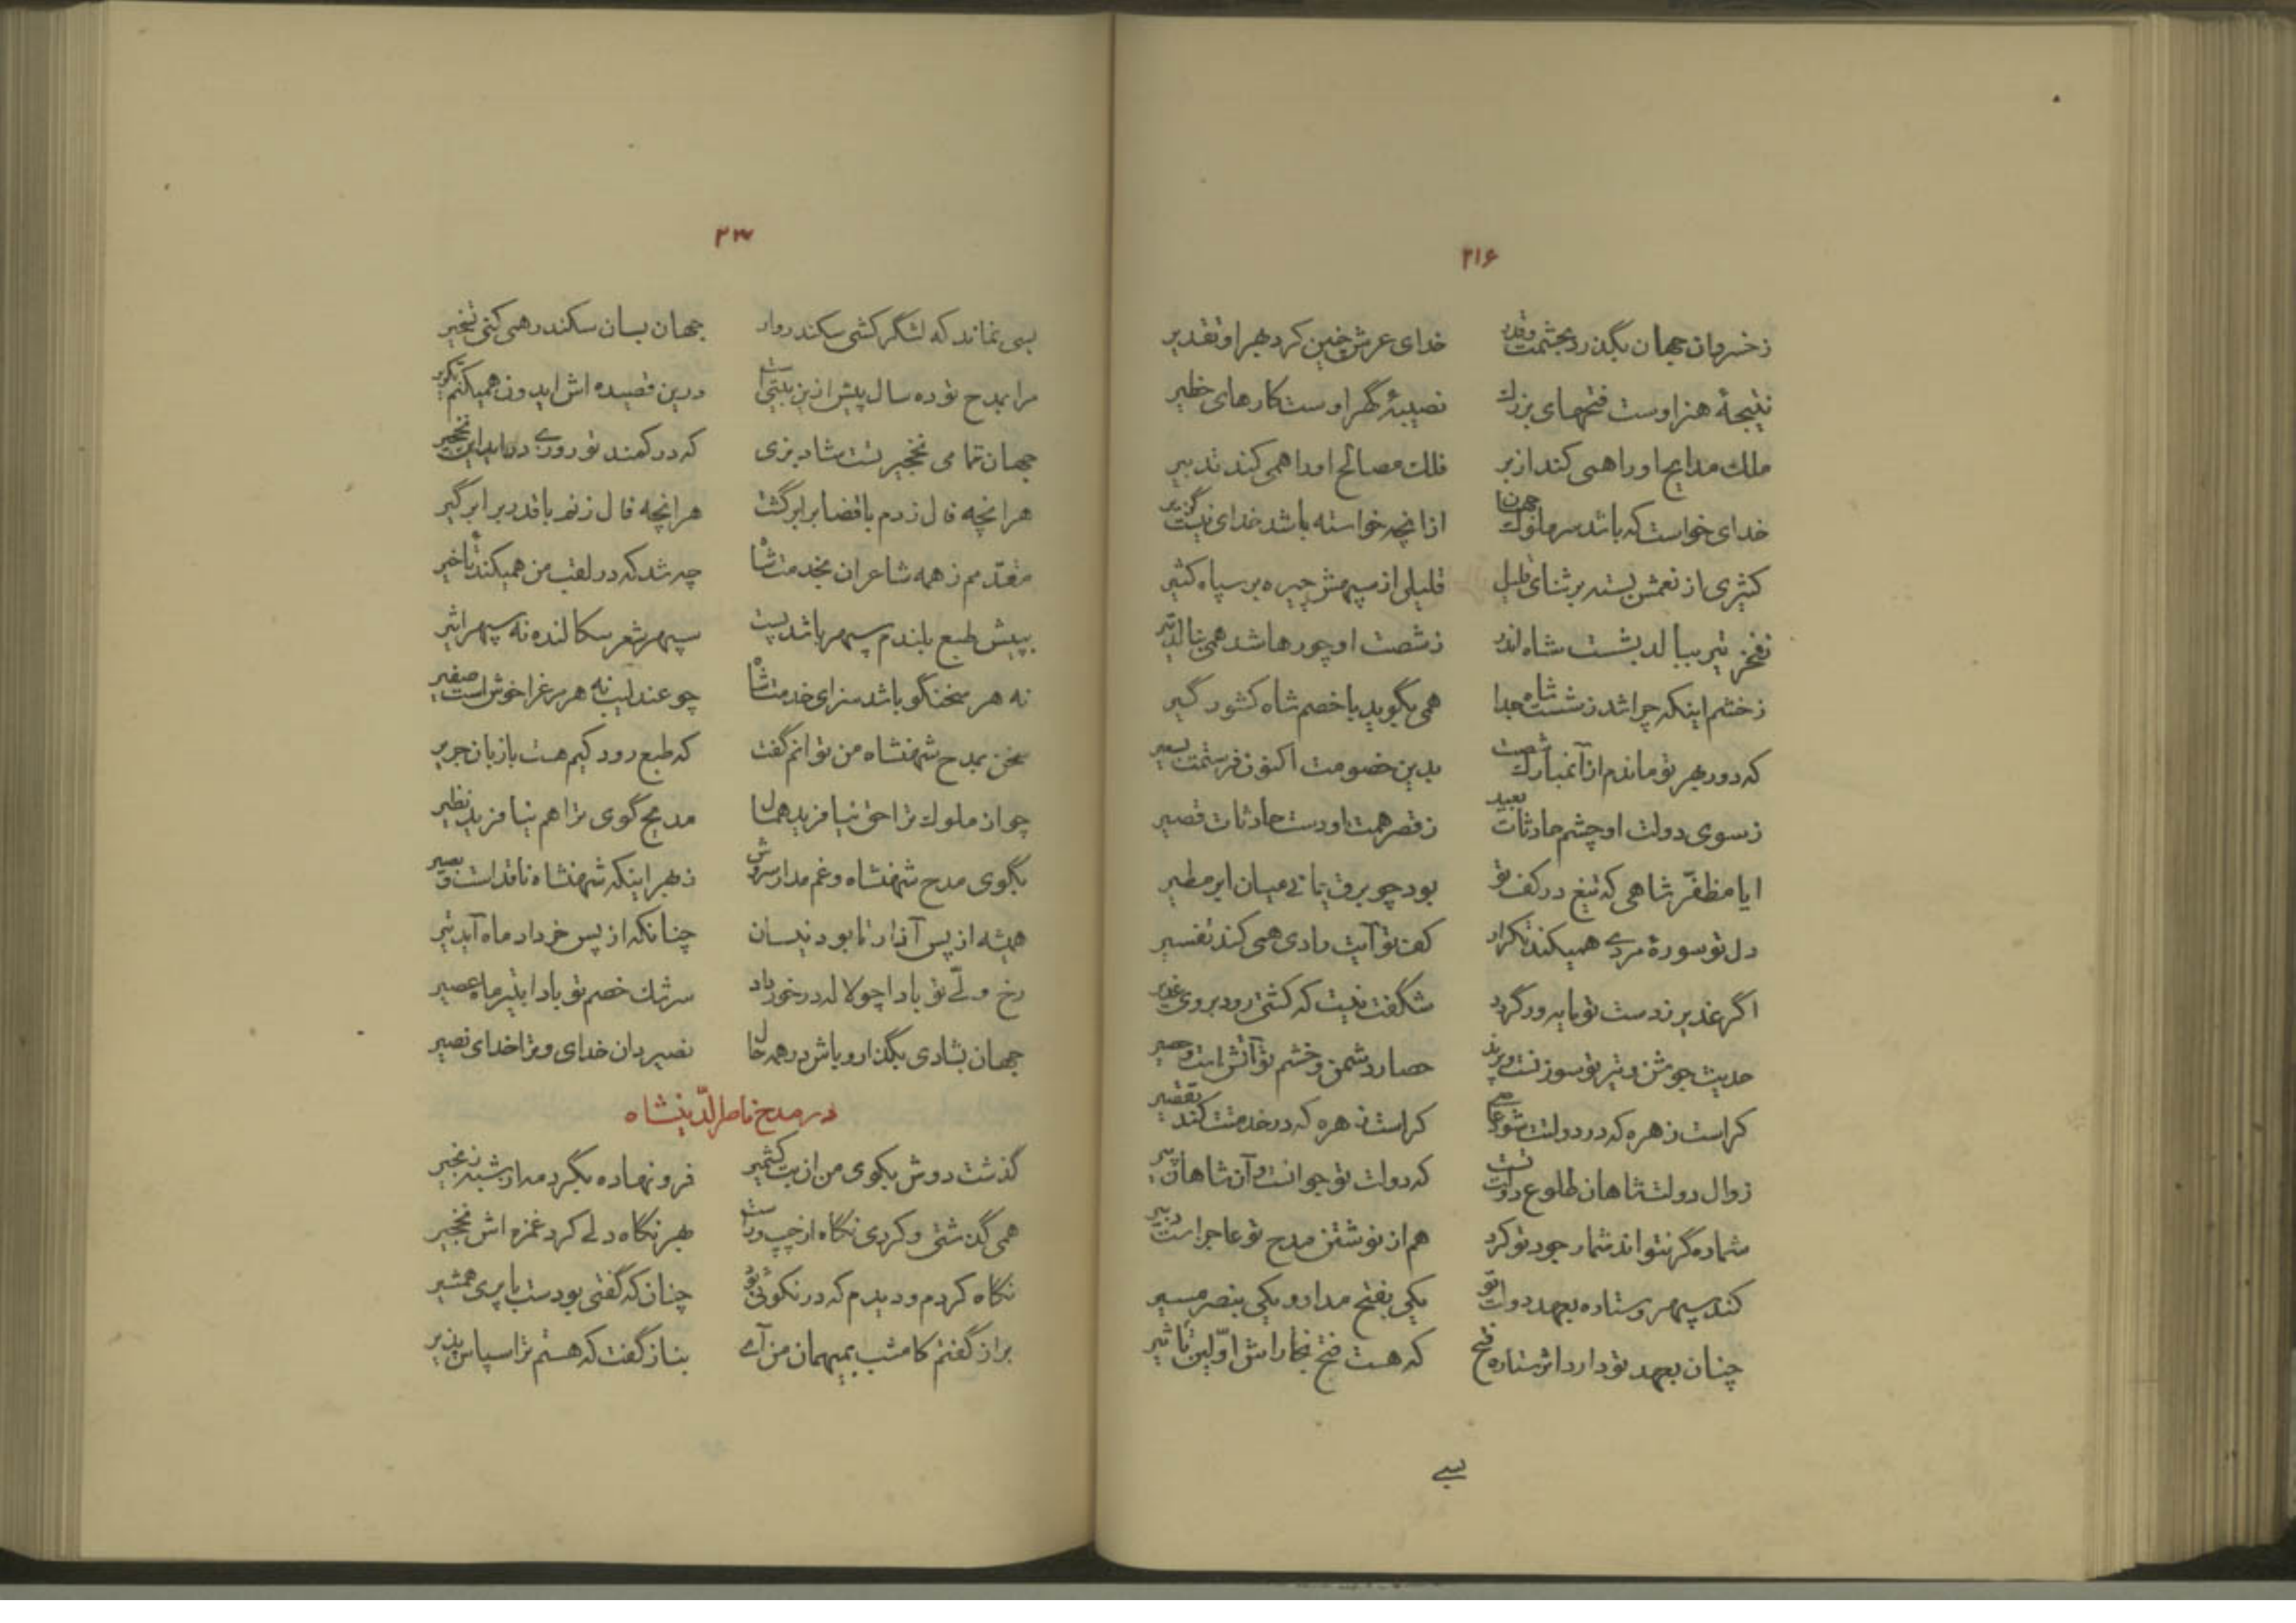 ۲۱۶
ز خسروان جهان بگذرد بحشمت و قدر خدای عرش چنین کرد بهر او تقدیر
نتیجهٔ هنر اوست فتحهای بزرك نصیبهٔ گهر اوست کارهای خطیر
ملك مدایح او را همی کند از بر فلك مصالح او را همی کند تدبیر
خدای خواست که باشد سر ملوك جهان از آنچه خواسته باشد خدای نیست گزیر
کثیری از نعمش بسته بر ثنای قلیل قلیلی از سپهش چیره بر سپاه کثیر
ز فخر تیر ببالد بشست شاه اندر ز شصت او چو رها شد همی بنالد تیر
ز خشم اینکه چرا شد ز شست شاه جدا همی بگوید با خصم شاه کشور گیر
که دور بهر تو ماندم از آن مبارك شصت بدین خصومت اکنون فرستمت بسعیر
ز سوی دولت او چشم حادثات بعید ز قصر همت او دست حادثات قصیر
ایا مظفّر شاهی که تیغ در کف تو بود چو برق یمانی میان ابر مطیر
دل تو سورهٔ مردی همیکند تکرار کف تو آیت رادی همی کند تفسیر
اگر غدیر ز دست تو مایه ور گردد شگفت نیست که کشتی رود بروی غدیر
حدیث جوشن و تیر تو سوزنست و پرند حصار دشمن و خشم تو آتش است و حصیر
کراست زهره که در دولتت شود عاصی کراست زهره که در خدمتت کند تقصیر
زوال دولت شاهان طلوع دولت تست که دولت تو جوانست و آن شاهان پیر
شماره گر نتواند شمار جود تو کرد هم از نوشتن مدح تو عاجز است دبیر
کند سپهر و ستاره بعهد دولت تو یکی بفتح مدار و یکی بنصر مسیر
چنان بعهد تو دارد اثر ستاره فتح که هست فتح بخاراش اوّلین تأثیر
بسی
۲۳
بسی نماند که لشگر کشی سکندروار جهان بسان سکندر همی کنی تسخیر
مرا بمدح تو ده سال پیش ازین بیتی است درین قصیده اش ایدون همیکنم تکریر
جهان تمامی نخجیر تست شاد بزی که در کمند تو روزی درآید این نخجیر
هر انچه فال زدم با قضا برابر گشت هر انچه فال زنم با قدر برابر گیر
مقدّمم ز همه شاعران بخدمت شاه چه شد که در لقب من همیکند تأخیر
بپیش طبع بلندم سپهر باشد پست سپهر شعر سکالنده نه سپهر اثیر
نه هر سخنگو باشد سزای خدمت شاه چو عندلیب نه هر مرغرا خوش است صفیر
سخن بمدح شهنشاه من توانم گفت که طبع رودکیم هست با زبان جریر
چو از ملوك ترا حق نیافرید همال مدیح گوی ترا هم نیافرید نظیر
بگوی مدح شهنشاه و غم مدار سروش ز بهر اینکه شهنشاه ناقد است و بصیر
همیشه از پس آذار تا بود نیسان چنانکه از پس خرداد ماه آید تیر
رخ ولّی تو بادا چو لاله در خرداد سرشك خصم تو بادا بتیر ماه عصیر
جهان بشادی بگذار و باش در همه حال نصیر دان خدای و ترا خدای نصیر
در مدح ناصرالدّینشاه
گذشت دوش بکوی من ان بت کشمیر فرو نهاده بگرد مه از شبه زنجیر
همی گذشتی و کردی نگاه از چپ و راست بهر نگاه دلی کرد غمزه اش نخجیر
نگاه کردم و دیدم که در نکوئی تو چنان که گفتی بودست با پری همشیر
براز گفتم کامشب بمیهمان من آی بناز گفت که هستم ترا سپاس پذیر